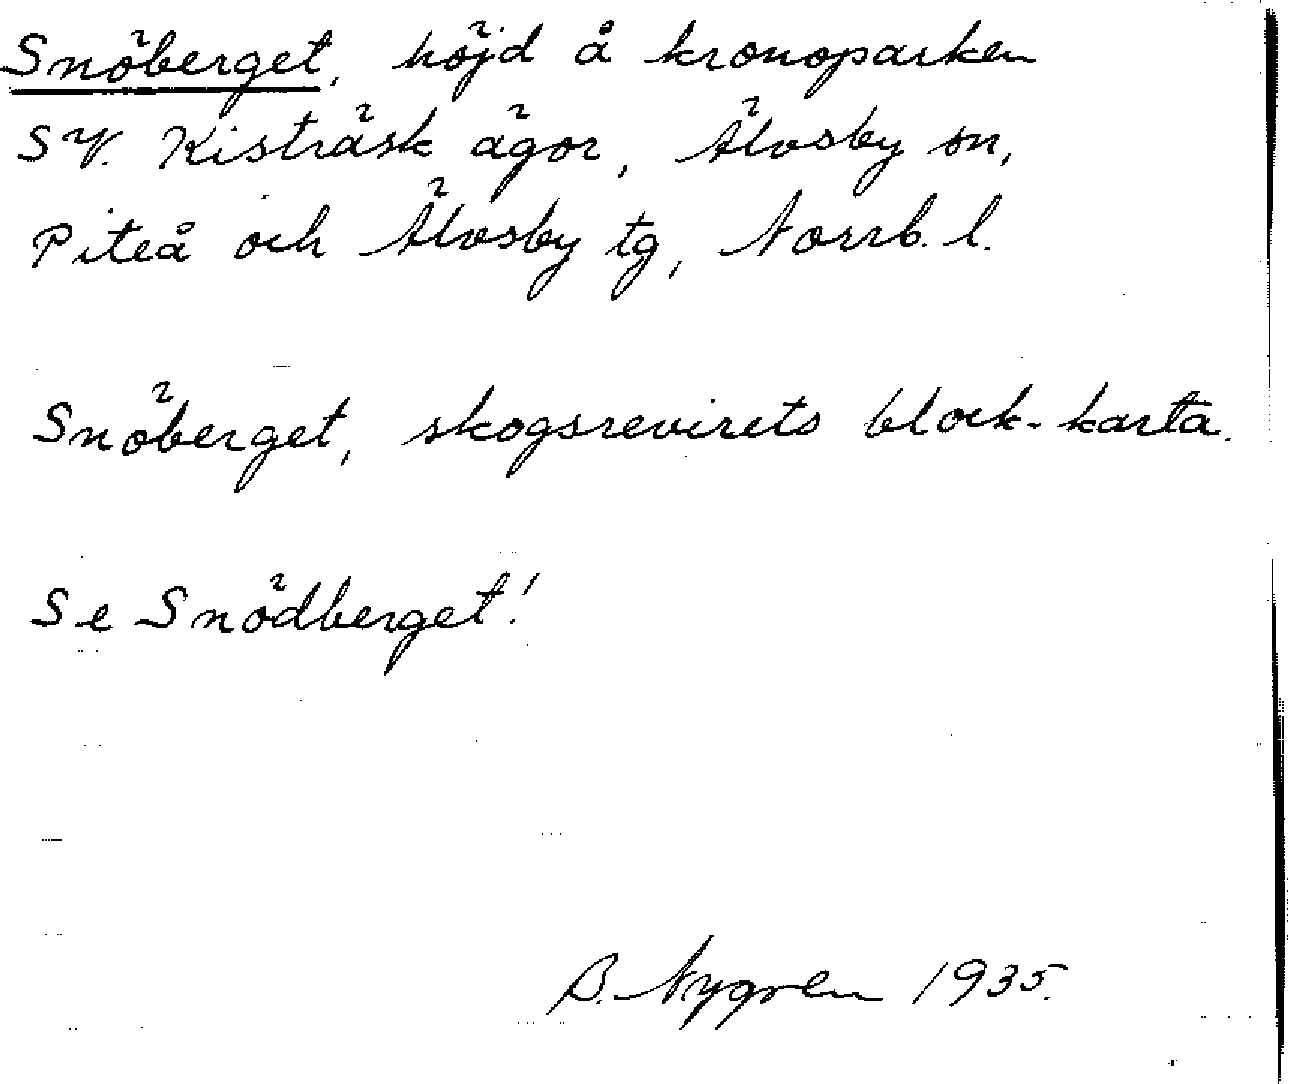 Snöberget, höjd å kronoparken
SV. Kisträsk ägor, Älvsby sn,
Piteå och Älvsby tg, Norrb. l.
Snöberget, skogsrevirets block-karta.
Se Snödberget!
B. Nygren 1935.